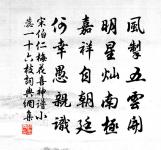 風掣五雲開
明星燦南極
嘉祥自朝廷
何幸愚親識
宋伯仁梅花喜神譜小
蕊一十六枝詞典網集